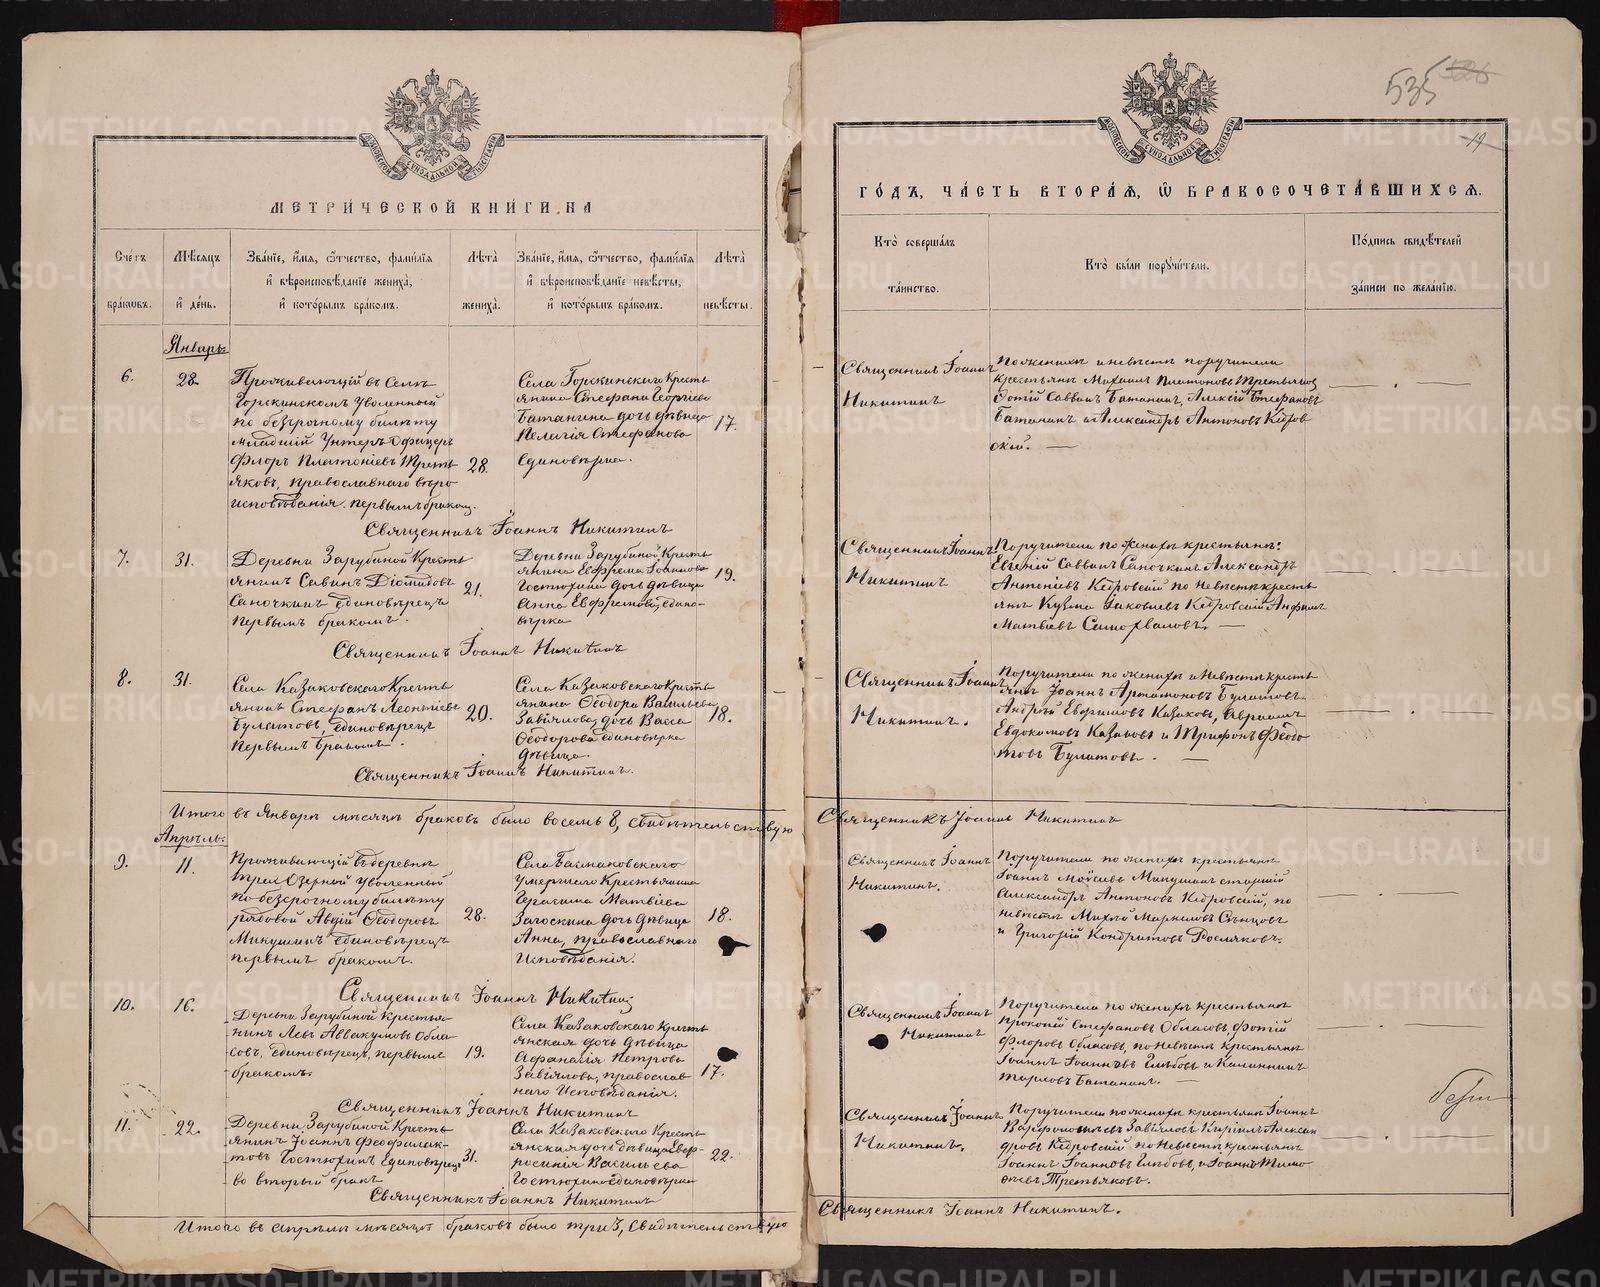 МЕТРИЧЕСКОЙ КНИГИ НА
Счетъ браковъ.
Мѣсяцъ и день.
Званіе, имя, отчество, фамилія и вѣроисповѣданіе жениха, и которымъ бракомъ.
Лѣта жениха.
Званіе, имя, отчество, фамилія и вѣроисповѣданіе невѣсты, и которымъ бракомъ.
Лѣта невѣсты.
Январь
6.
28
Проживающій въ Селѣ
Горскинскомъ уволенный
по безсрочному билѣту
младшій Унтеръ-Офицеръ
Флоръ Платоніевъ Треть
яковъ, православнаго вѣро
исповѣданія. первымъ бракомъ.
28.
Села Горскинскаго Кресть
янина Стефана Георгіева
Батанина дочь дѣвица
Пелагія Стефанова
Единовѣрка.
17.
Священникъ Іоаннъ Никитинъ
7.
31.
Деревни Зарубиной Кресть
янинъ Савинъ Діомидовъ
Саночкинъ единовѣрецъ
первымъ бракомъ.
21.
Деревни Зарубиной Кресть
янина Евфрема Іоаннова
Гостюхина дочь дѣвица
Анна Евфремова, едино-
вѣрка
19.
Священникъ Іоаннъ Никитинъ
8.
31.
Села Казаковскаго Кресть
янинъ Стефанъ Леонтіевъ
Булатовъ, единовѣрецъ
первымъ бракомъ.
20.
Села Казаковскаго Кресть
янина Ѳеодора Васильева
Завіялова дочь Васса
Ѳеодорова единовѣрка
дѣвица.
18.
Священникъ Іоаннъ Никитинъ.
Итого въ Январѣ мѣсяцѣ браковъ было восемь 8, свидѣтельствую
Апрѣль.
9.
11.
Проживающій въ деревни
Трех Озерной уволенный
по безсрочному билѣту
рядовой Авдій Ѳеодоровъ
Микушинъ единовѣрецъ
первымъ бракомъ.
28.
Села Басмановскаго
умершаго Крестьянина
Герасима Матвіева
Загоскина дочь дѣвица
Анна, православнаго
Исповѣданія.
18.
Священникъ Іоаннъ Никитинъ
10.
16.
Деревни Зарубиной Крестья-
нинъ Левъ Аввакумовъ Обла
совъ, единовѣрецъ, первымъ
бракомъ.
19.
Села Казаковскаго Кресть
янская дочь дѣвица
Афанасія Петрова
Завіялова, православ
наго Исповѣданія.
17.
Священникъ Іоаннъ Никитинъ
11.
22.
Деревни Зарубиной Кресть
янинъ Іоаннъ Феофилак-
товъ Гостюхинъ Единовѣрецъ
во вторый бракъ
31.
Села Казаковскаго Кресть
янская дочь дѣвица Евф-
росинія Васильева
Гостюхина единовѣрка
22.
Священникъ Іоаннъ Никитинъ
Итого въ апрѣлѣ мѣсяцѣ браковъ было три 3, Свидѣтельствую
535
19
ГОДЪ, ЧАСТЬ ВТОРАЯ, Ѡ БРАКОСОЧЕТАВШИХСЯ.
Кто совершалъ таинство.
Кто были поручители.
Подпись свидѣтелей записи по желанію.
Священникъ Іоаннъ
Никитинъ
По женихѣ и невѣстѣ поручители
крестьяне Михаилъ Платоновъ Третьяковъ
Фотій Саввинъ Батанинъ, Алексій Стефановъ
Батанинъ и Александръ Антоновъ Кедров
скій.
Священникъ Іоаннъ
Никитинъ
Поручители по женихѣ крестьяне:
Евгеній Саввинъ Саночкинъ Александръ
Антоніевъ Кедровскій по невѣстѣ кресть
яне Кузма Іаковлевъ Кедровскій Анфимъ
Матвіевъ Самохваловъ.
Священникъ Іоаннъ
Никитинъ.
Поручители по женихѣ и невѣстѣ кресть
яне Іоаннъ Артамоновъ Булатовъ
Андрей Евфимовъ Казаковъ, Авраамъ
Евдокимовъ Казаковъ и Трифонъ Ѳедо
товъ Булатовъ.
Священникъ Іоаннъ Никитинъ
Священникъ Іоаннъ
Никитинъ.
Поручители по женихѣ крестьяне
Іоаннъ Моѵсеевъ Микушинъ старшій
Александръ Антоновъ Кедровскій, по
невѣстѣ Михей Маркеловъ Сѣнцовъ
и Григорій Кондратовъ Росляковъ.
Священникъ Іоаннъ
Никитинъ
Поручители по женихѣ крестьяне
Прокопій Стефановъ Обласовъ, Фотій
Флоровъ Обласовъ, по невѣстѣ крестьяне
Іоаннъ Іоанновъ Глѣбовъ и Калинникъ
Марковъ Батанинъ.
Священникъ Іоаннъ
Никитинъ.
Поручители по женихѣ крестьяне Іоаннъ
Варфоломеевъ Завіяловъ Кирилъ Алексан
дровъ Кедровскій по невѣстѣ крестьяне
Іоаннъ Іоанновъ Глѣбовъ, и Іоаннъ Тимо
феевъ Третьяковъ.
Священникъ Іоаннъ Никитинъ.
METRIKI.GASO-URAL.RU